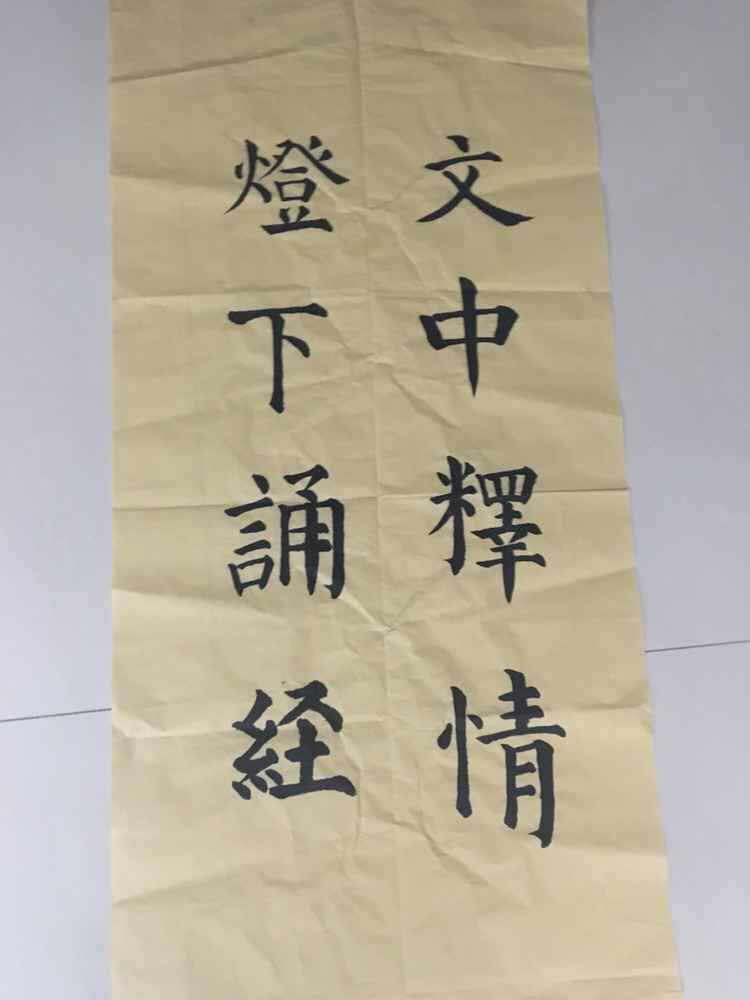 文中釋情
燈下誦経